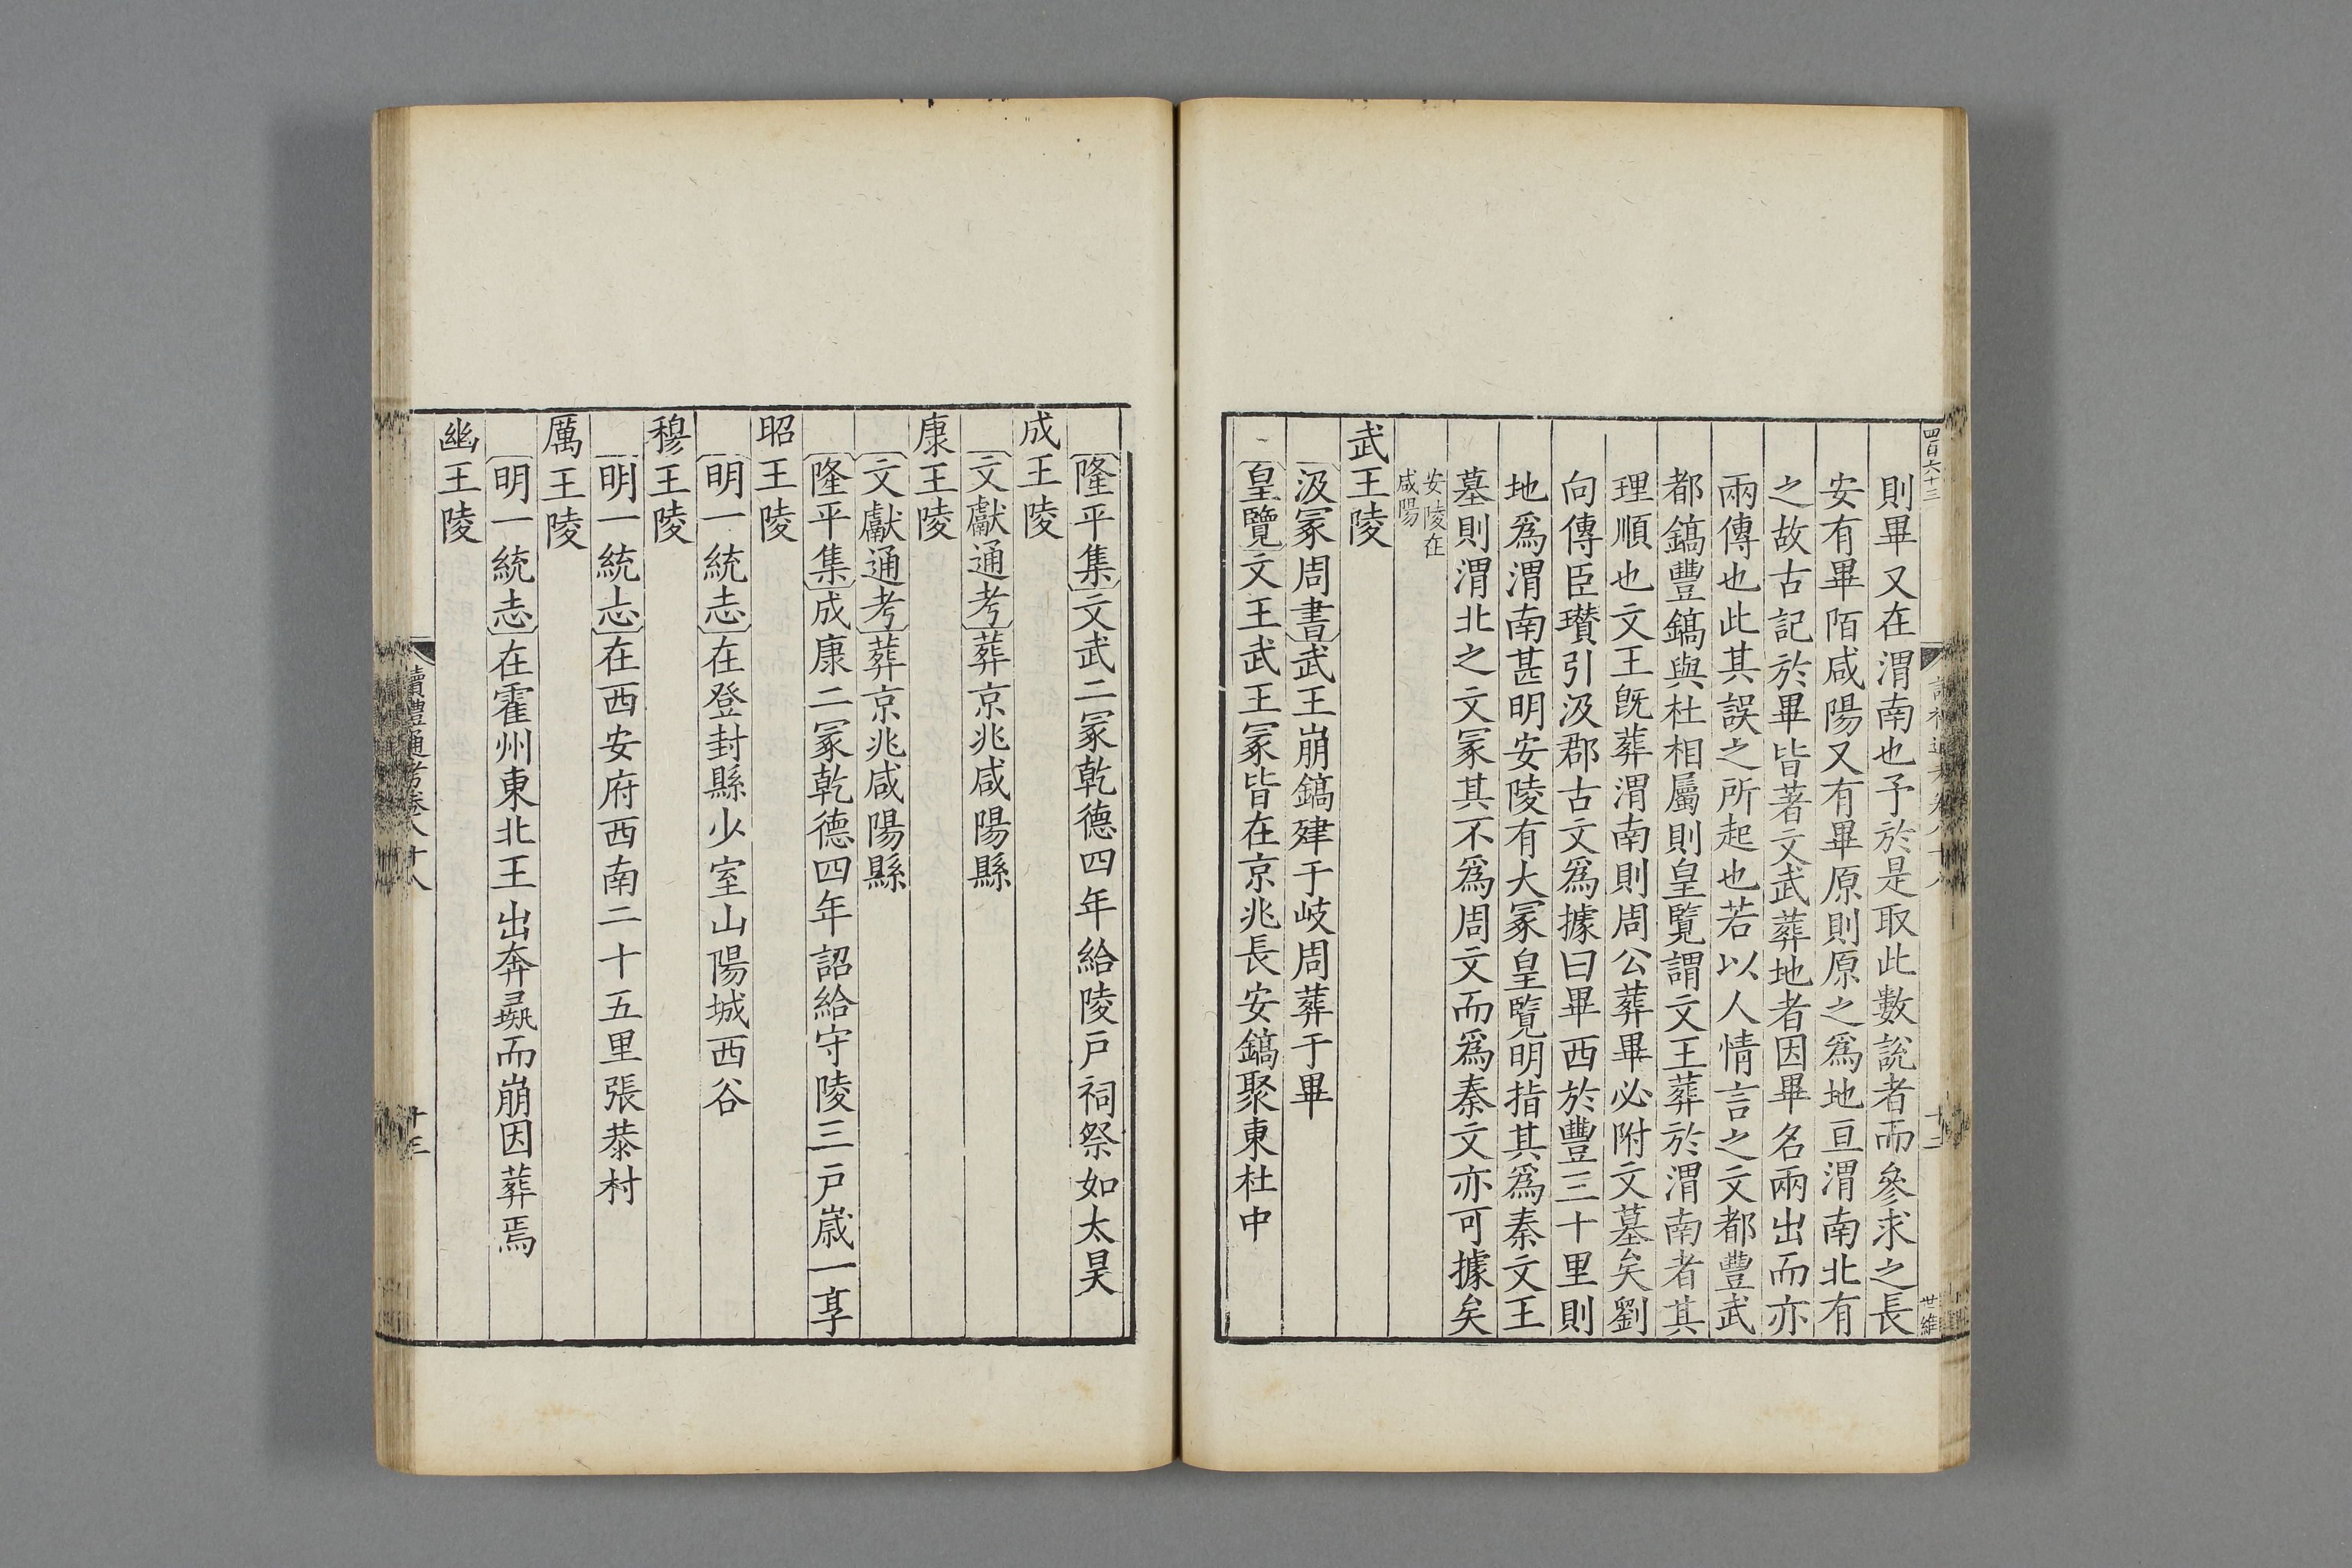 四百六十三
則畢又在渭南也予於是取此數說者而參求之長
安有畢陌咸陽又有畢原則原之爲地亘渭南北有
之故古記於畢皆著文武葬地者因畢名兩出而亦
兩傳也此其誤之所起也若以人情言之文都豐武
都鎬豐鎬與杜相屬則皇覽謂文王葬於渭南者其
理順也文王旣葬渭南則周公葬畢必附文墓矣劉
向傳臣瓚引汲郡古文爲據曰畢西於豐三十里則
地爲渭南甚明安陵有大冢皇覽明指其爲秦文王
墓則渭北之文冢其不爲周文而爲秦文亦可據矣
安陵在
咸陽
武王陵
汲冢周書武王崩鎬肂于岐周葬于畢
皇覽文王武王冢皆在京兆長安鎬聚東杜中
世維
隆平集文武二冢乾德四年給陵戶祠祭如太昊
成王陵
文獻通考葬京兆咸陽縣
康王陵
文獻通考葬京兆咸陽縣
隆平集成康二冢乾德四年詔給守陵三戶歲一享
昭王陵
明一統志在登封縣少室山陽城西谷
穆王陵
明一統志在西安府西南二十五里張恭村
厲王陵
明一統志在霍州東北王出奔彘而崩因葬焉
幽王陵
讀禮通考卷八十八
十三